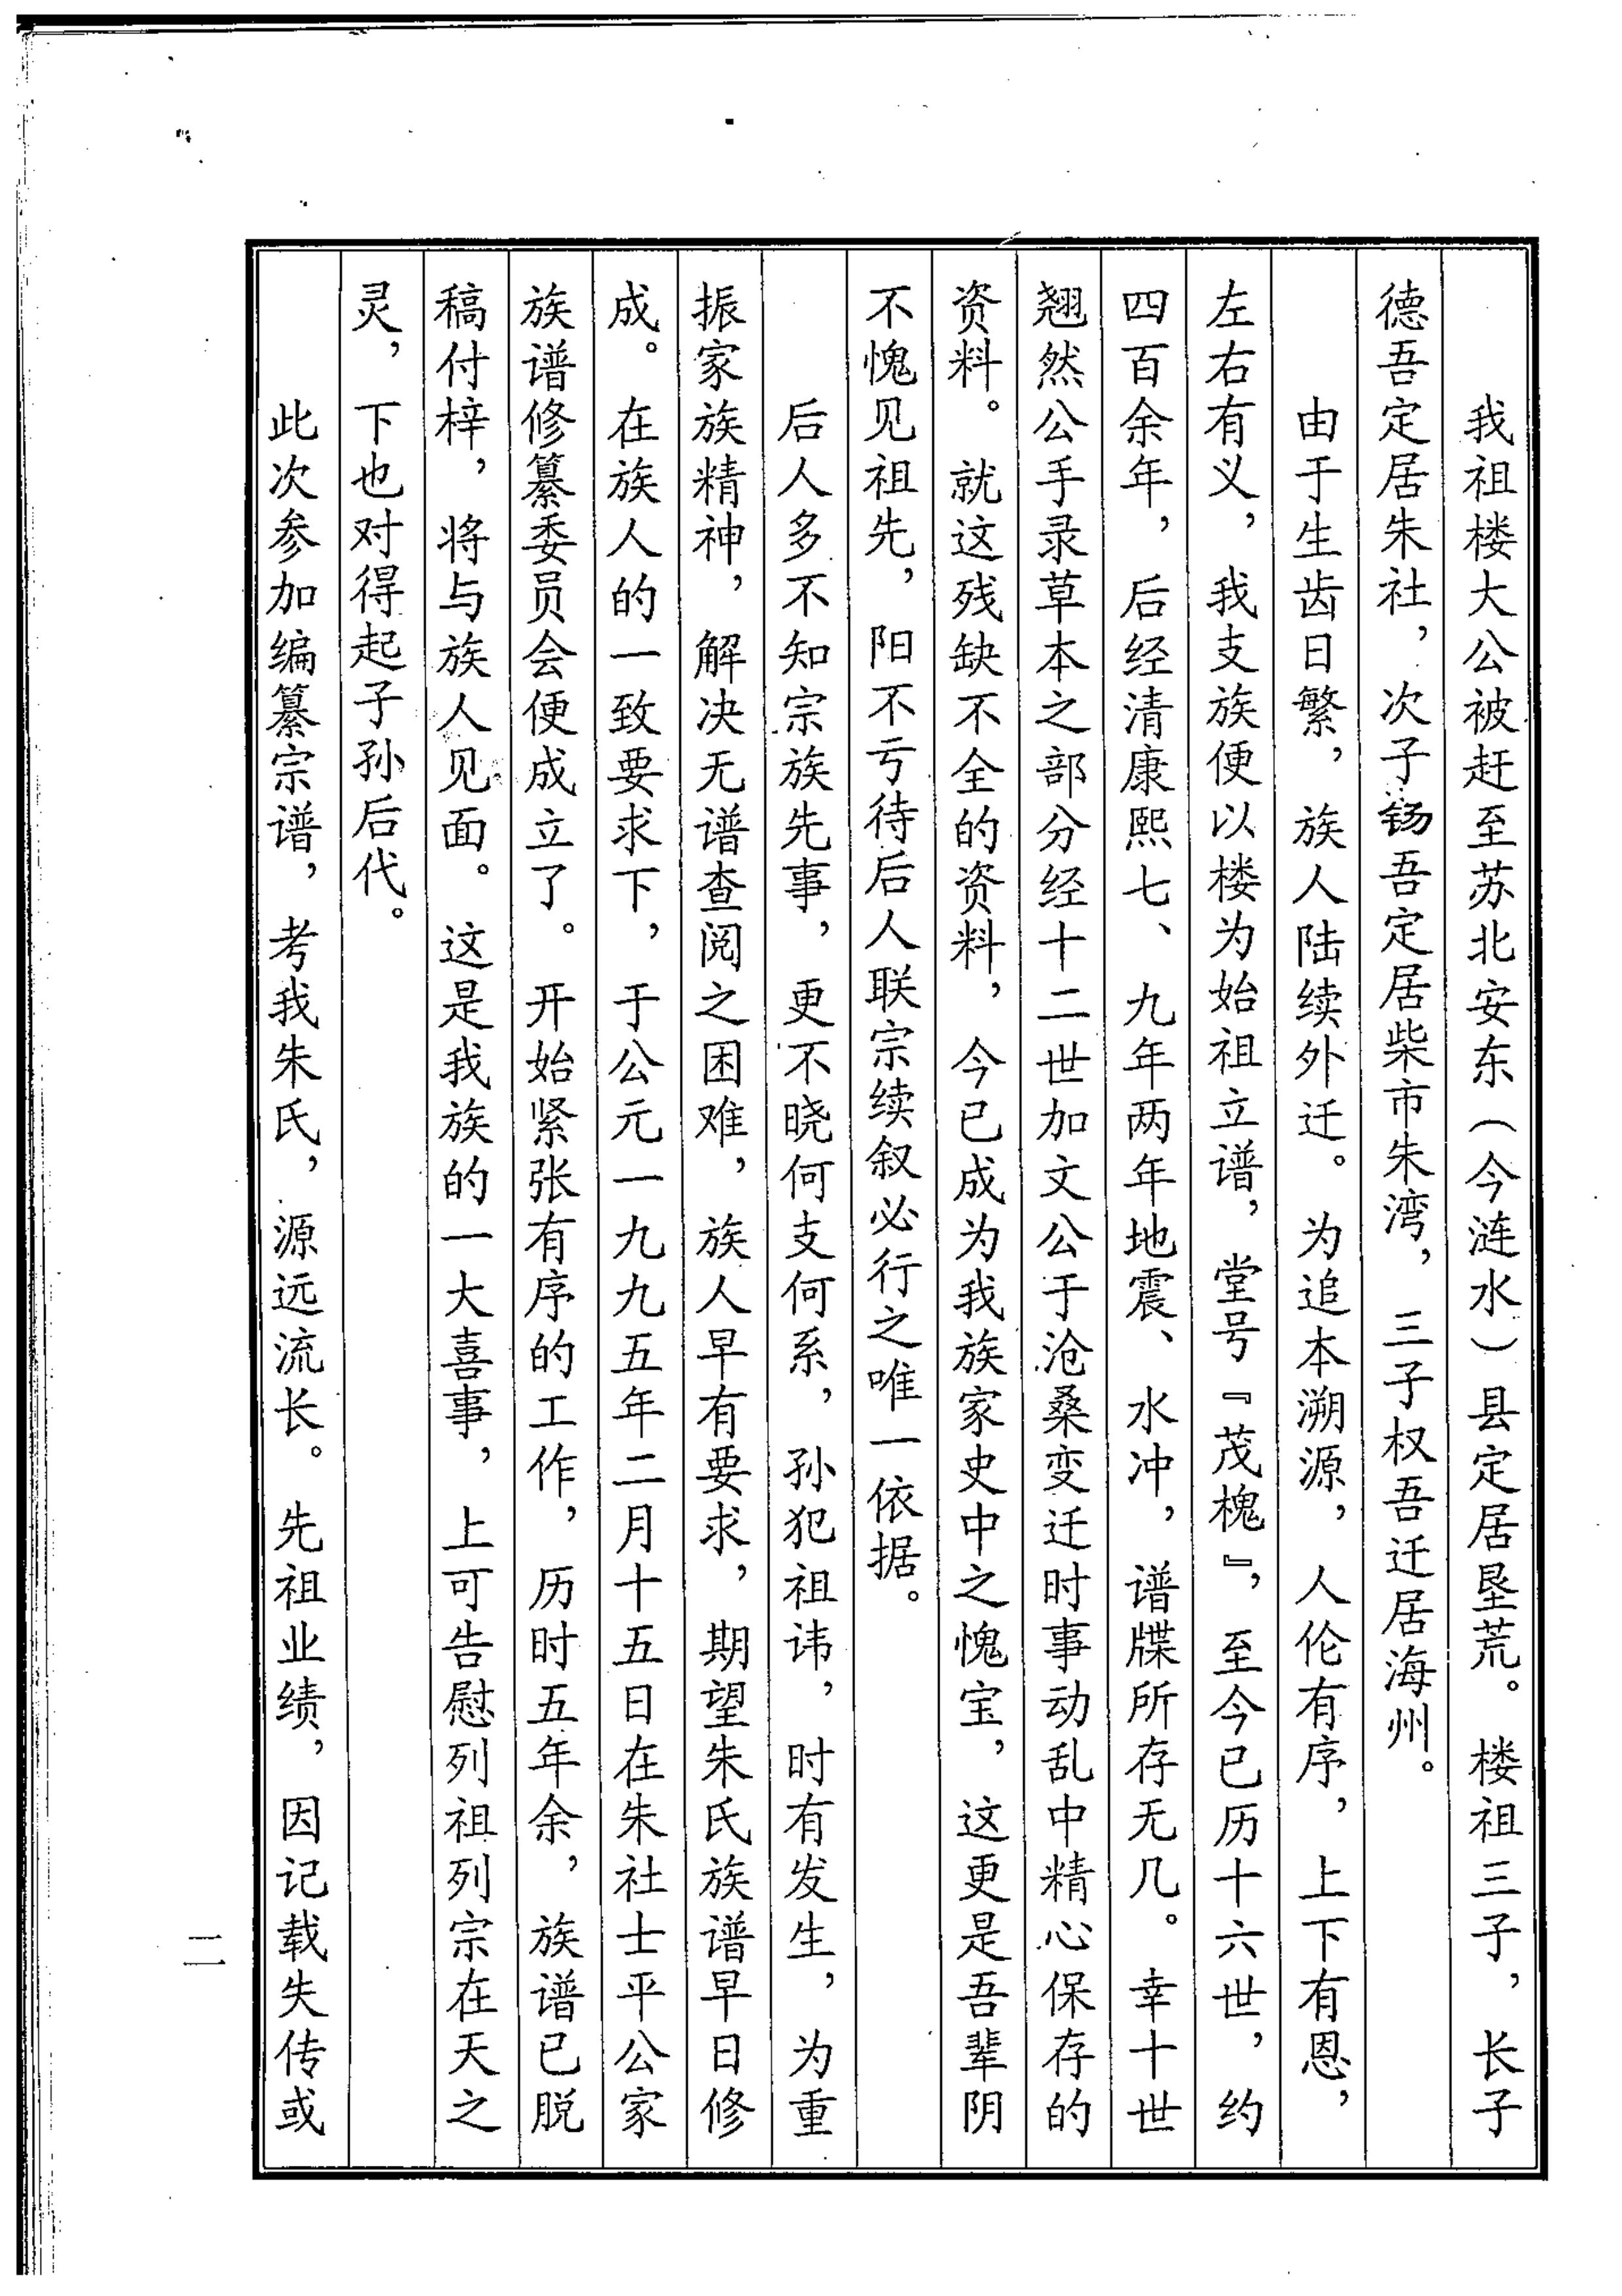 我祖楼大公被赶至苏北安东（今涟水）县定居垦荒。楼祖三子，长子
德吾定居朱社，次子钖吾定居柴市朱湾，三子权吾迁居海州。
由于生齿日繁，族人陆续外迁。为追本溯源，人伦有序，上下有恩，
左右有义，我支族便以楼为始祖立谱，堂号『茂槐』，至今已历十六世，约
四百余年，后经清康熙七、九年两年地震、水冲，谱牒所存无几。幸十世
翘然公手录草本之部分经十二世加文公于沧桑变迁时事动乱中精心保存的
资料。就这残缺不全的资料，今已成为我族家史中之愧宝，这更是吾辈阴
不愧见祖先，阳不亏待后人联宗续叙必行之唯一依据。
后人多不知宗族先事，更不晓何支何系，孙犯祖讳，时有发生，为重
振家族精神，解决无谱查阅之困难，族人早有要求，期望朱氏族谱早日修
成。在族人的一致要求下，于公元一九九五年二月十五日在朱社士平公家
族谱修纂委员会便成立了。开始紧张有序的工作，历时五年余，族谱已脱
稿付梓，将与族人见面。这是我族的一大喜事，上可告慰列祖列宗在天之
灵，下也对得起子孙后代。
此次参加编纂宗谱，考我朱氏，源远流长。先祖业绩，因记载失传或
二